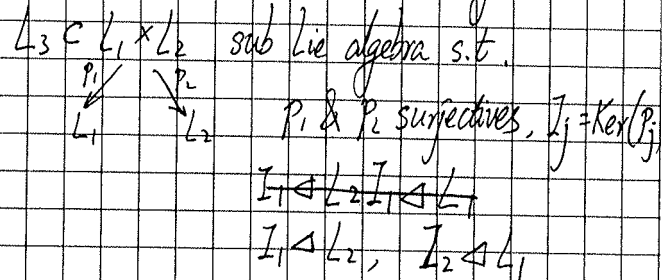 L₃ ⊂ L₁ × L₂ sub Lie algebra s.t.
p₁ p₂
L₁ L₂ p₁ & p₂ surjectives, I_j = Ker(p_j
I₁ ◁ L₂ I₁ ◁ L₁
I₁ ◁ L₂, I₂ ◁ L₁